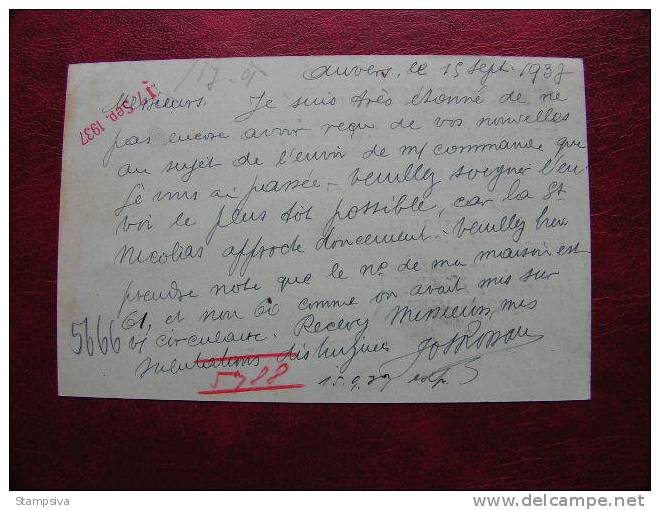 17.9
Anvers, le 15 Sept. 1937
17 Sep. 1937
Messieurs. Je suis très étonné de ne
pas encore avoir reçu de vos nouvelles
au sujet de l'envoi de m/ commande que
Je vous ai passée. Veuillez soigner l'en-
voi le plus tôt possible, car la St
Nicolas approche doucement. Veuillez bien
prendre note que le no de ma maison est
61, et non 60 comme on avait mis sur
v/ circulaire. Recevez Messieurs, mes
salutations distinguées
5666
5988
15.9.37
Stampsiva
delcampe.net